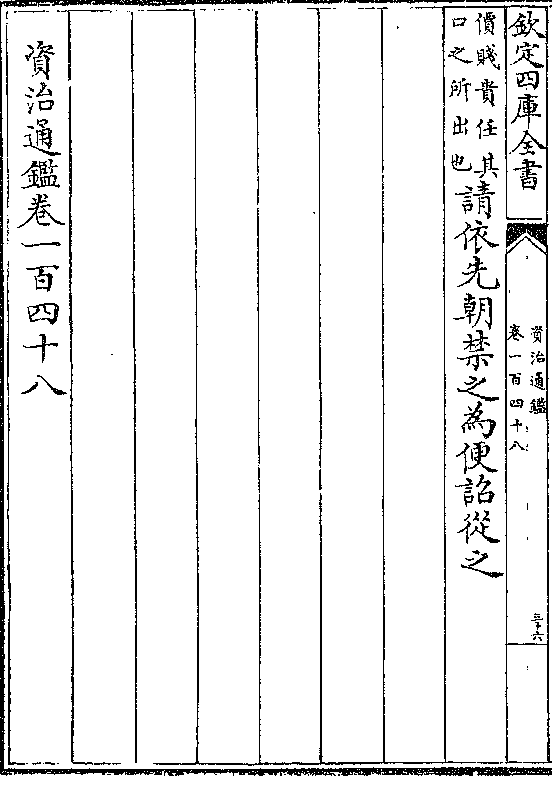 欽定四庫全書
資治通鑑
卷一百四十八
三十六
價賤貴任其
口之所出也
請依先朝禁之為便詔從之
資治通鑑卷一百四十八